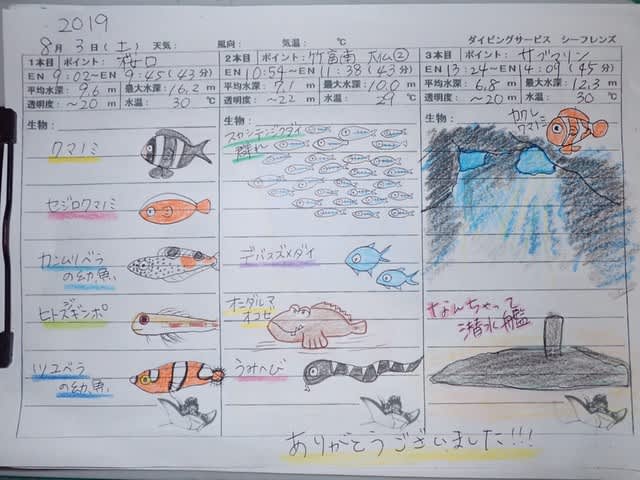 2019
8月 3日(土) 天気: 風向: 気温: ℃ ダイビングサービス シーフレンズ
1本目 ポイント: 桜口
EN 9:02~EN 9:45(43分)
平均水深: 9.6 m 最大水深: 16.2 m
透明度: ~20 m 水温: 30 ℃
生物:
クマノミ
セジロクマノミ
カンムリベラ
の幼魚
ヒトスジギンポ
ツユベラ
の幼魚
2本目 ポイント: 竹富南
EN 10:54~EN 11:38(43分)
平均水深: 7.1 m 最大水深: 10.0 m
透明度: ~22 m 水温: 29 ℃
生物:
スカシテンジクダイ
群れ
デバスズメダイ
オニダルマ
オコゼ
うみへび
3本目 ポイント: サブマリン
EN 13:24~EN 14:09(45分)
平均水深: 6.8 m 最大水深: 12.3 m
透明度: ~20 m 水温: 30 ℃
生物:
カクレ
クマノミ
なんちゃって
潜水艦
ありがとうございました!!!